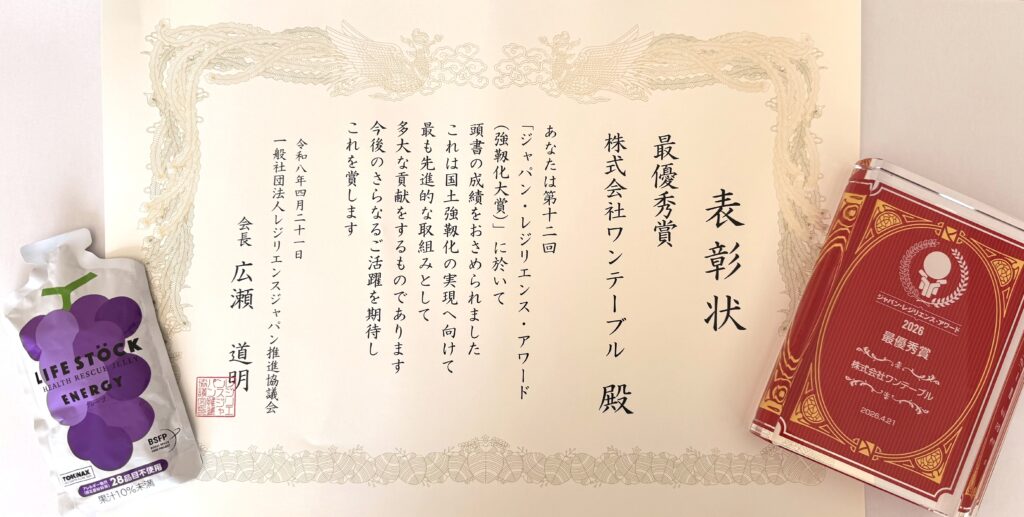 表彰状
最優秀賞
株式会社ワンテーブル 殿
あなたは第十二回
「ジャパン・レジリエンス・アワード
(強靱化大賞)」に於いて
頭書の成績をおさめられました
これは国土強靱化の実現へ向けて
最も先進的な取組みとして
多大な貢献をするものであります
今後のさらなるご活躍を期待し
これを賞します
令和八年四月二十一日
一般社団法人レジリエンスジャパン推進協議会
会長 広瀬 道明
LIFE STOCK
HEALTH RESCUE JELLY
ENERGY
BSFP
TOKINAX
28品目不使用
果汁10%未満
ジャパン・レジリエンス・アワード
2026
最優秀賞
株式会社ワンテーブル
2026.4.21